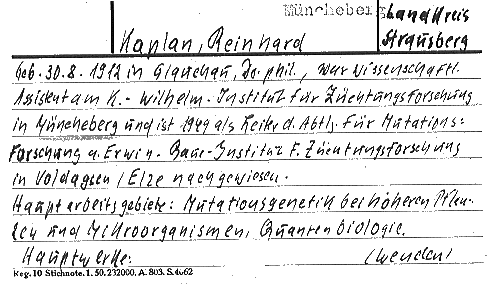 Müncheberg
Landkreis
Strausberg
Kaplan, Reinhard
Geb. 30.8. 1912 in Glauchau, Dr. phil., war wissenschaftl.
Assistent am K.-Wilhelm-Institut für Züchtungsforschung
in Müncheberg und ist 1949 als Leiter d. Abtlg. für Mutations=
forschung a. Erwin-Baur-Institut f. Züchtungsforschung
in Voldagsen / Elze nachgewiesen.
Hauptarbeitsgebiete: Mutationsgenetik bei höheren Pflan-
zen und Mikroorganismen, Quantenbiologie.
Hauptwerke: (wenden)
Reg. 10 Stichnote. 1. 50. 232000. A. 803. S. 4062